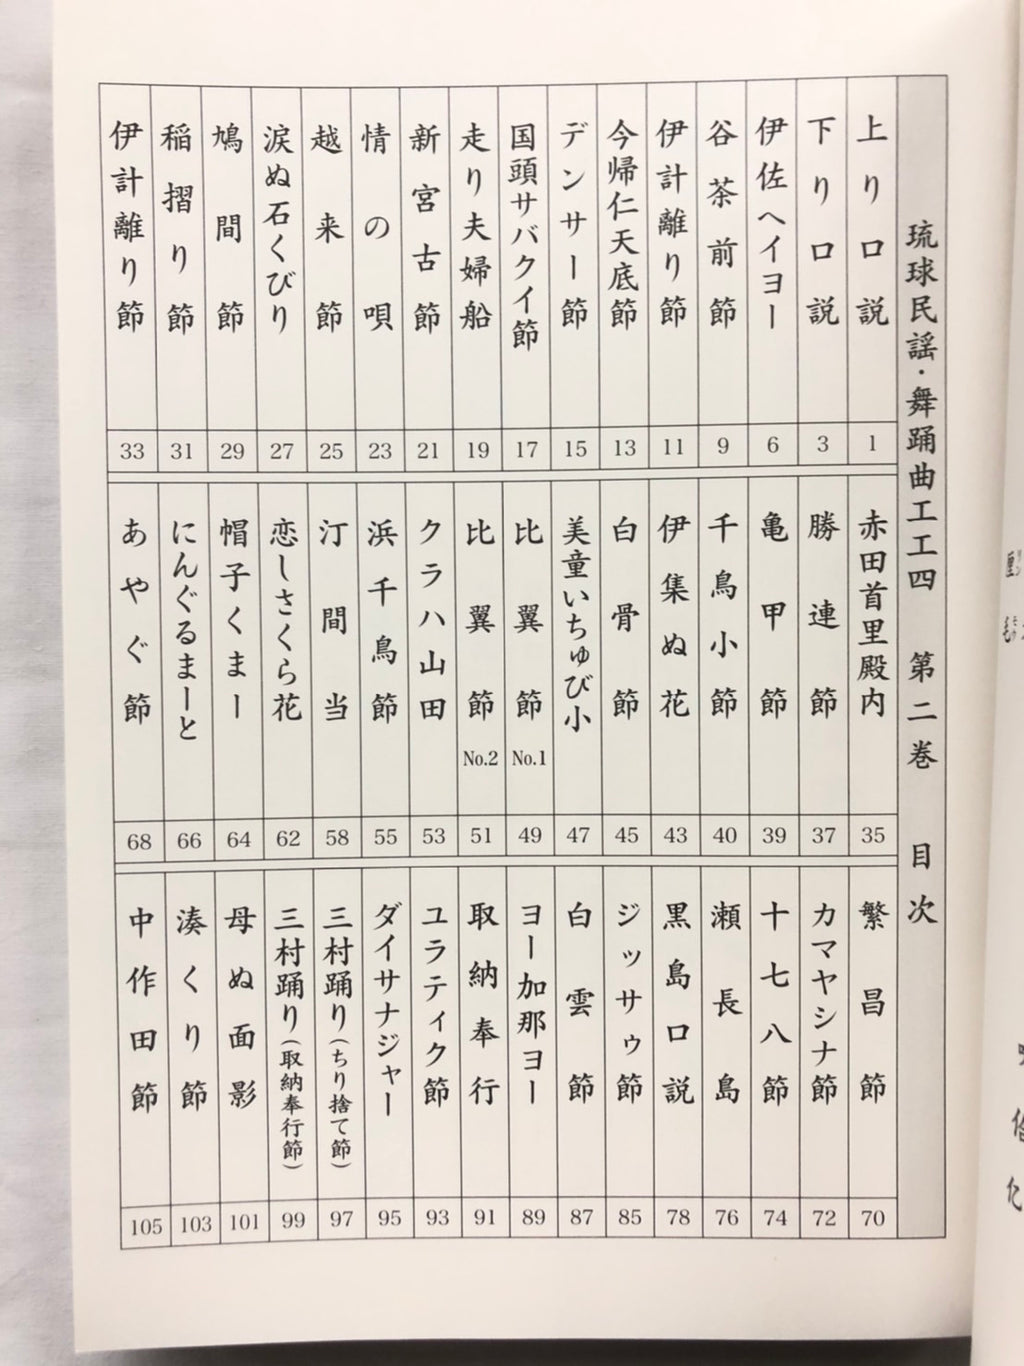 琉球民謡・舞踊曲工工四 第二巻 目次
上り口説 1
下り口説 3
伊佐ヘイヨー 6
谷茶前節 9
伊計離り節 11
今帰仁天底節 13
デンサー節 15
国頭サバクイ節 17
走り夫婦船 19
新宮古節 21
情の唄 23
越来節 25
涙ぬ石くびり 27
鳩間節 29
稲摺り節 31
伊計離り節 33
赤田首里殿内 35
勝連節 37
亀甲節 39
千鳥小節 40
伊集ぬ花 43
白骨節 45
美童いちゅび小 47
比翼節 No.1 49
比翼節 No.2 51
クラハ山田 53
浜千鳥節 55
汀間当 58
恋しさくら花 62
帽子くまー 64
にんぐるまーと 66
あやぐ節 68
繁昌節 70
カマヤシナ節 72
十七八節 74
瀬長島 76
黒島口説 78
ジッサゥ節 85
白雲節 87
ヨー加那ヨー 89
取納奉行 91
ユラティク節 93
ダイサナジャー 95
三村踊り(ちり捨て節) 97
三村踊り(取納奉行節) 99
母ぬ面影 101
湊くり節 103
中作田節 105